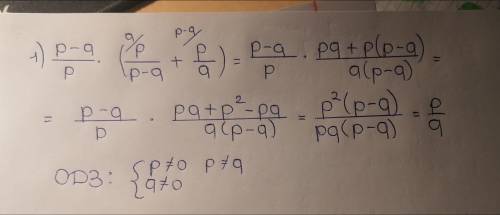 1) \frac{p-q}{p} \cdot \left( \frac{p}{p-q}^{q/} + \frac{p}{q}^{p-q/} \right) = \frac{p-q}{p} \cdot \frac{pq+p(p-q)}{q(p-q)} =
= \frac{p-q}{p} \cdot \frac{pq+p^2-pq}{q(p-q)} = \frac{p^2(p-q)}{pq(p-q)} = \frac{p}{q}
ОДЗ: { p≠0 p≠q
q≠0